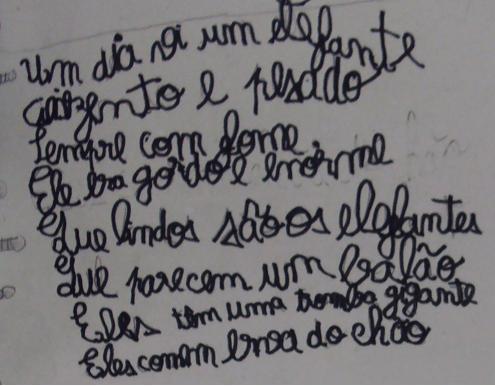 Um dia vi um elefante
cizento e pesado
Sempre com fome
Ele era gordo e enorme
Que lindos são os elefantes
Que parecem um balão
Eles têm uma tromba gigante
Eles comem erva do chão